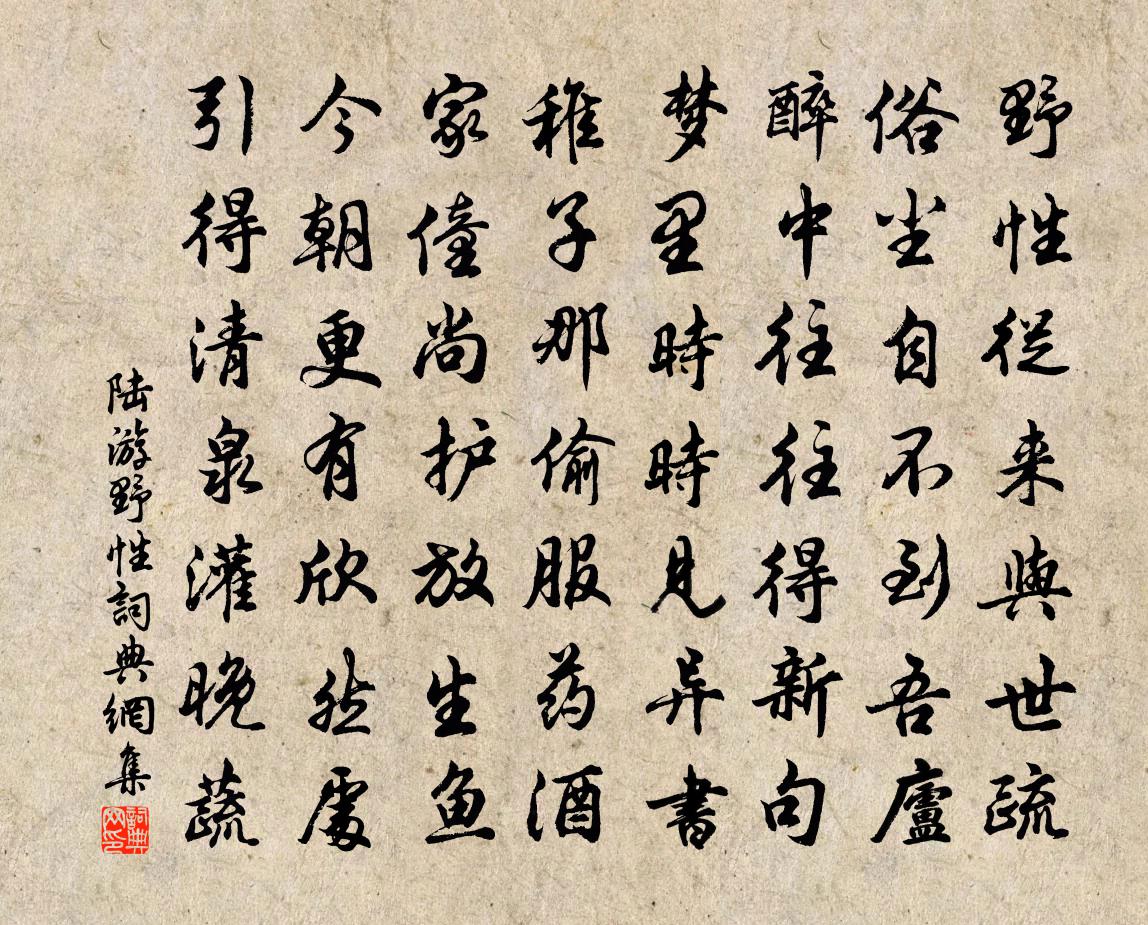 野性従来與世疏
俗尘自不到吾廬
醉中往往得新句
梦里時時見异書
稚子那偷服药酒
家僮尚护放生鱼
今朝更有欣然處
引得清泉灌晚蔬
陆游野性詞典網集
詞典网印